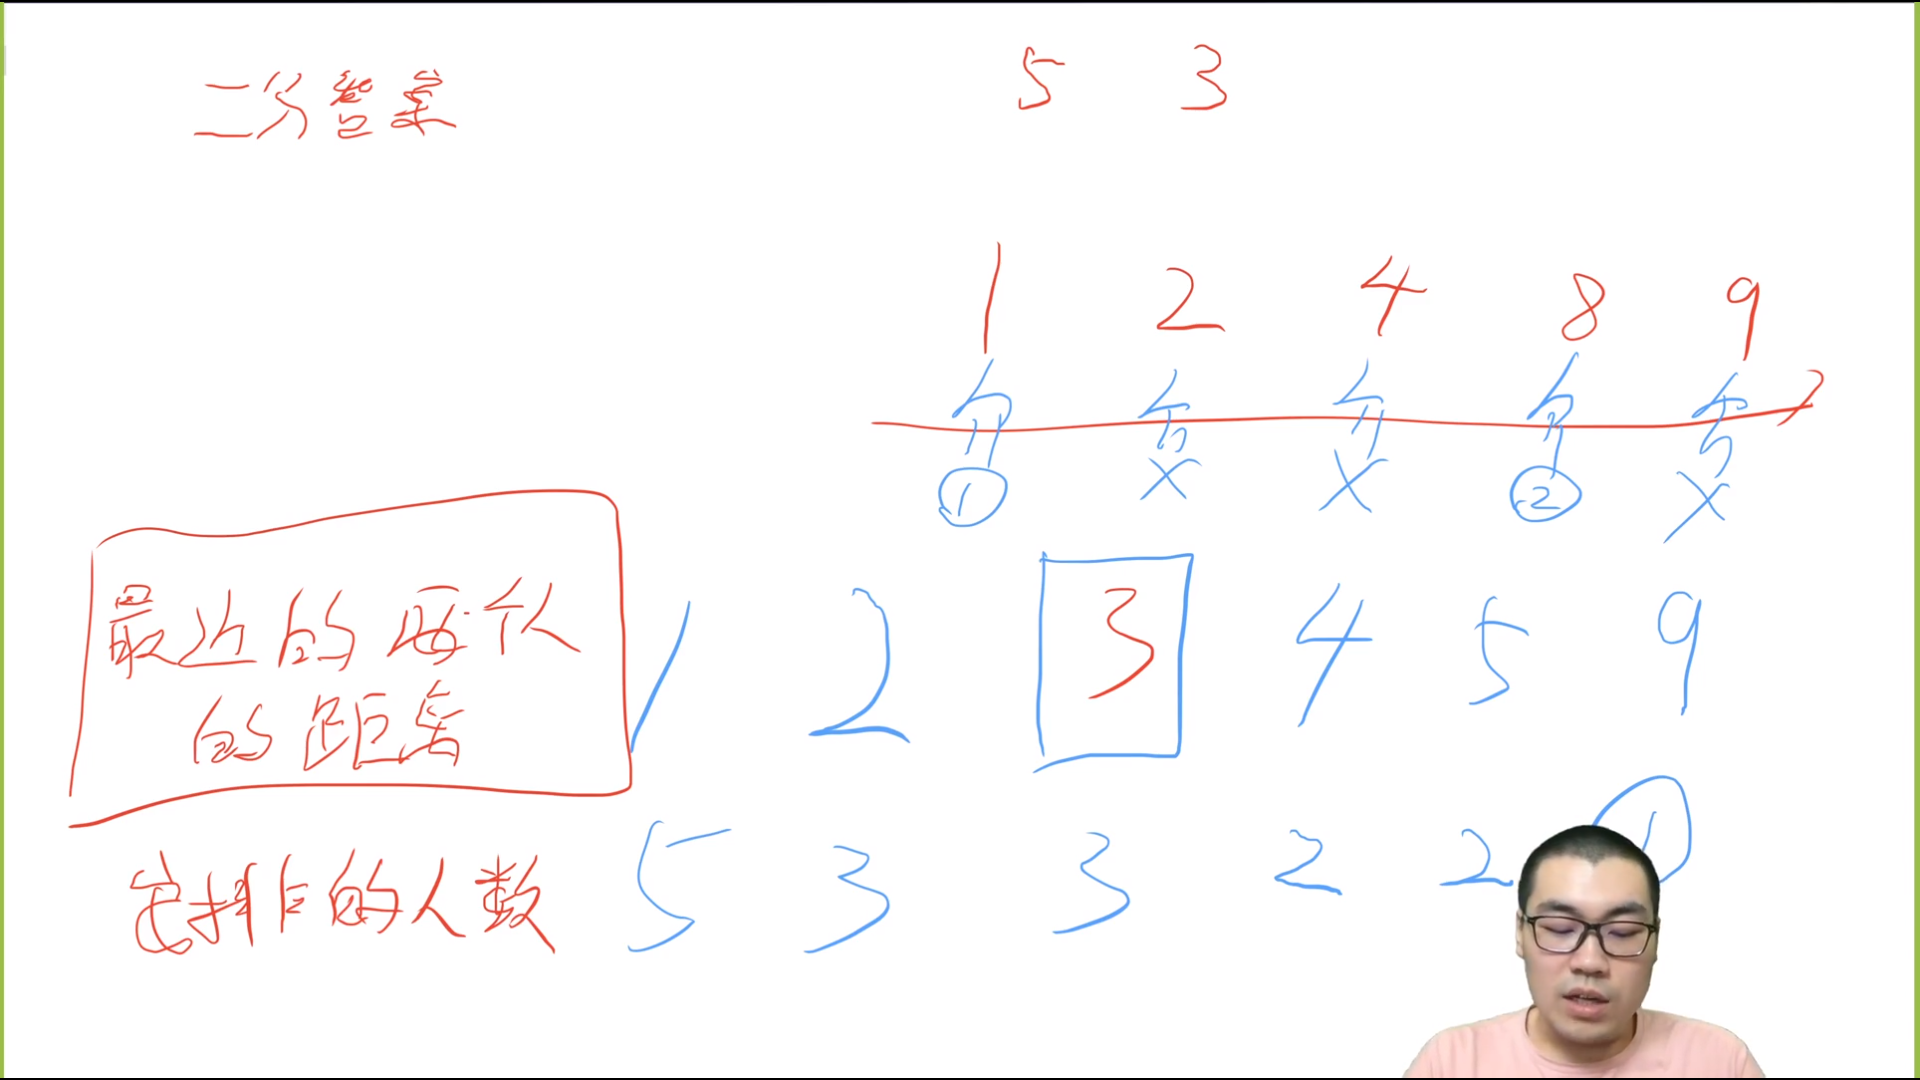 二分答案
5 3
1 2 4 8 9
① X X ② X
最近的两个人
的距离
1 2 3 4 5 9
安排的人数 5 3 3 2 2 1